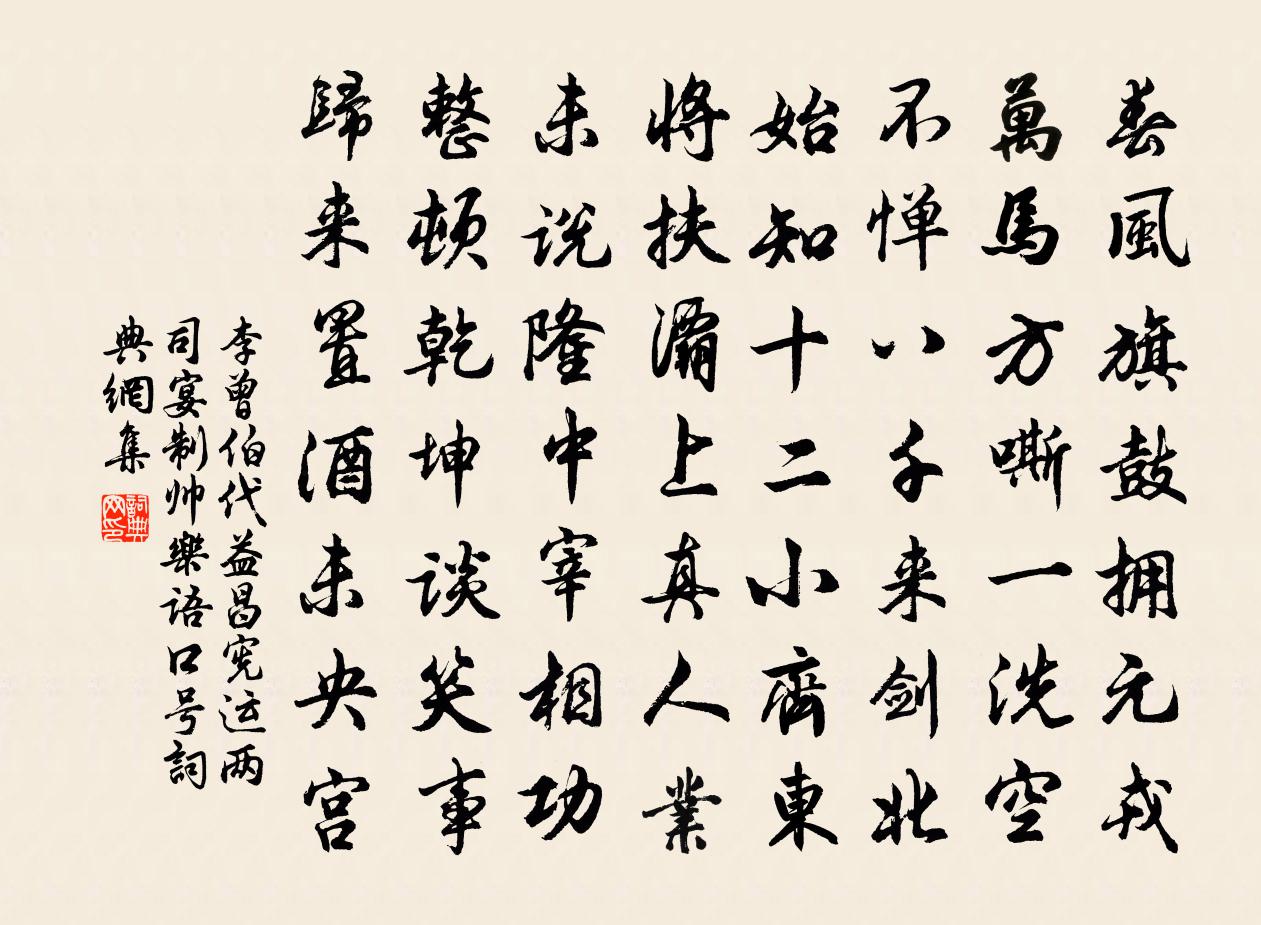 春風旗鼓拥元戎
萬馬方嘶一洗空
不惮八千来剑北
始知十二小齊東
将扶灞上真人業
未说隆中宰相功
整顿乾坤谈笑事
歸来置酒未央宫
李曾伯代益昌宪运两
司宴制帅樂语口号詞
典網集
詞典网印